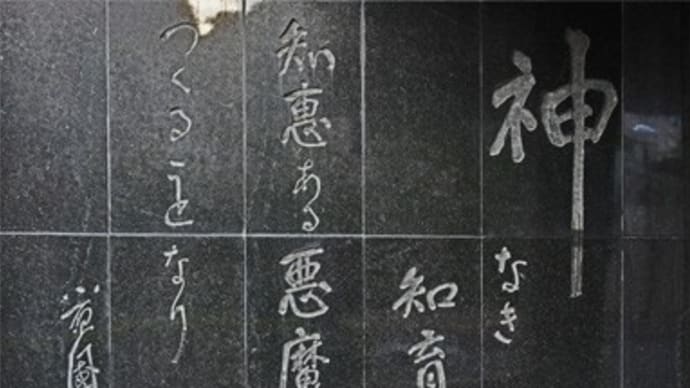 神なき
知育
知恵ある悪魔
つくることなり